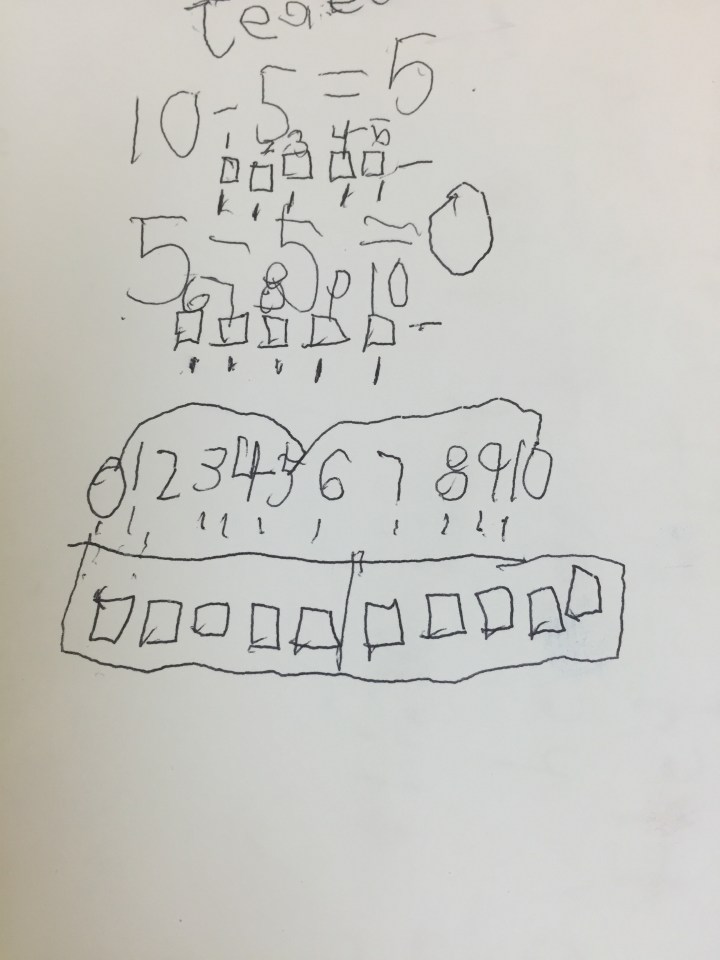 10 - 5 = 5
1 2 3 4 5
5 - 5 = 0
6 7 8 9 10
0 1 2 3 4 5 6 7 8 9 10